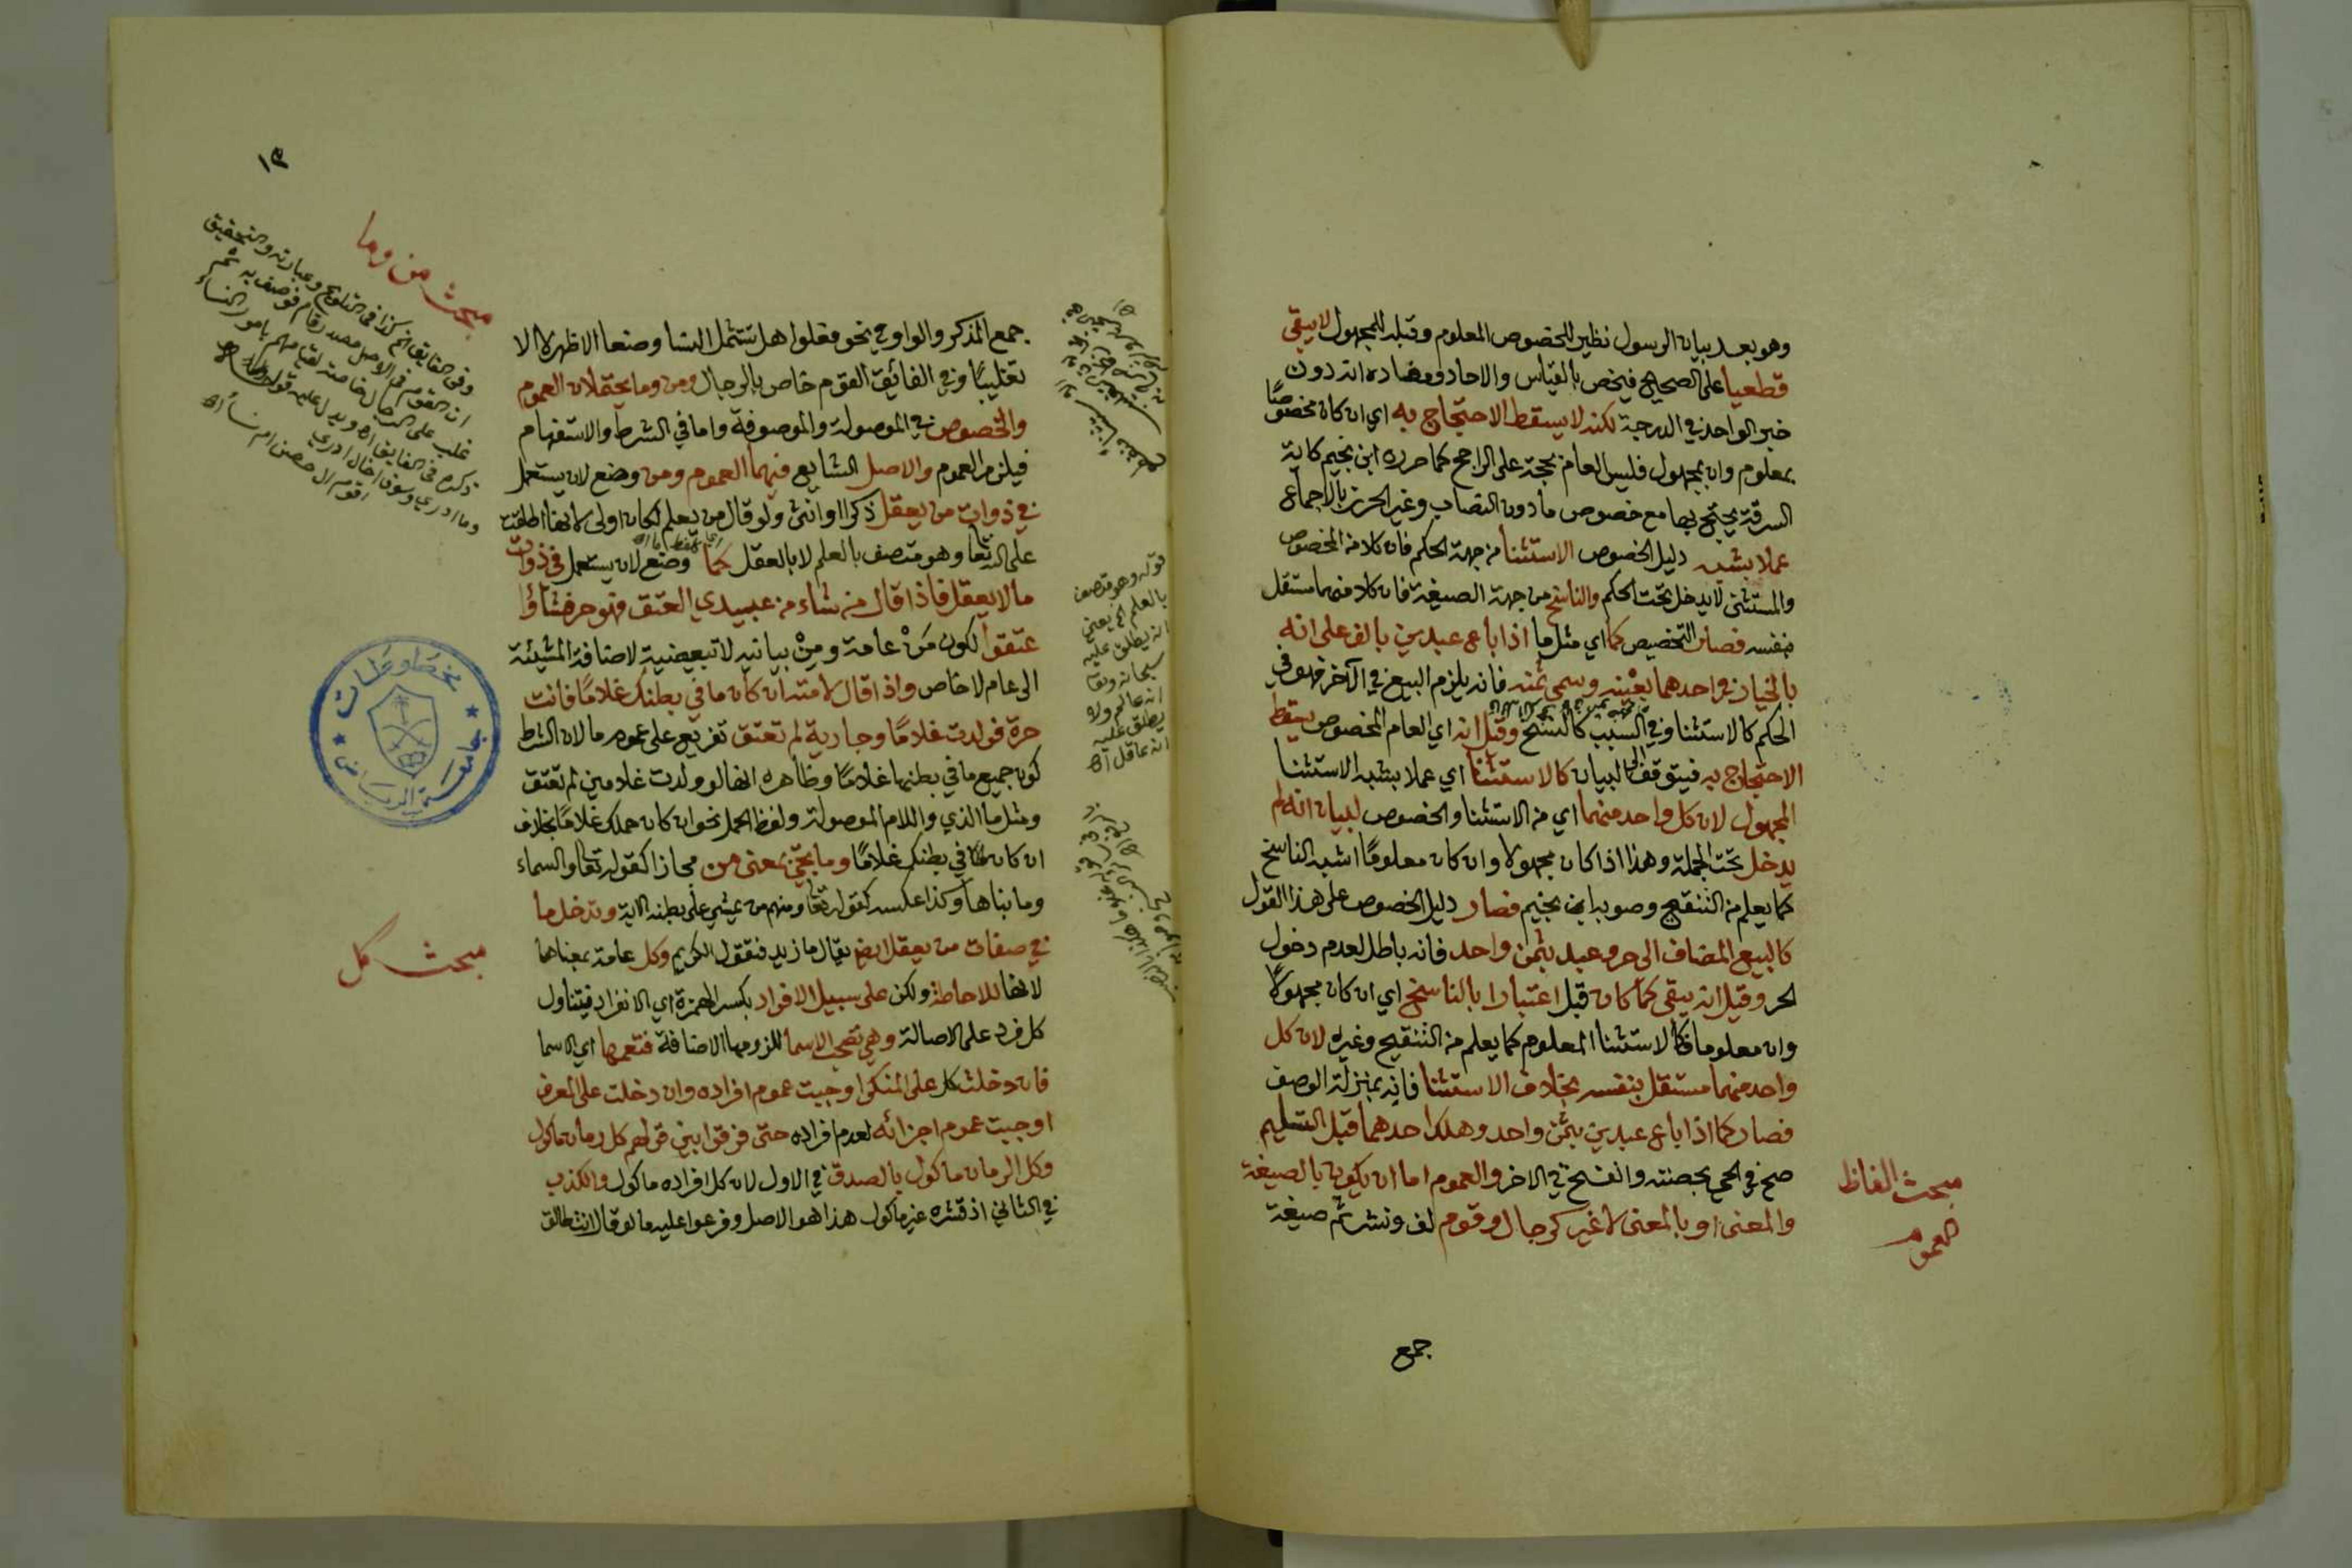 وهو بعد بيان الرسول نظير للخصوص المعلوم وقبله للمجهول لا يبقى
قطعيا على الصحيح فيخص بالقياس والاحاد ومفاده انه دون
خبر الواحد في الدرجة لكنه لا يسقط الاحتجاج به اي ان كان مخصوصًا
بمعلوم وان بمجهول فليس العام بحجة على الراجح كما حرره ابن نجيم كاية
السرقة يحتج بها مع خصوص ما دون النصاب وغير الحرز بالاجماع
عملا بشبه دليل الخصوص الاستثنا من جهة الحكم فان كلا من المخصوص
والمستثنى لا يدخل تحت الحكم والناسخ من جهة الصيغة فان كلا منهما مستقل
بنفسه فصار التخصيص كما اي مثل ما اذا باع عبدين بالف على انه
بالخيار في واحدهما بعينه وسمى ثمنه فانه يلزم البيع في الآخر فهو في
الحكم كالاستثنا وفي السبب كالنسخ وقيل انه اي العام المخصوص يسقط
الاحتجاج به فيتوقف الى البيان كالاستثنا اي عملا بشبه الاستثنا
المجهول لان كل واحد منهما اي من الاستثنا والخصوص لبيان انه لم
يدخل تحت الجملة وهذا اذا كان مجهولا وان كان معلومًا اشبه الناسخ
كما يعلم من التنقيح وصوبه ابن نجيم فصار دليل الخصوص على هذا القول
كالبيع المضاف الى حر وعبد بثمن واحد فانه باطل لعدم دخول
الحر وقيل انه يبقى كما كان قبل اعتبارا بالناسخ اي ان كان مجهولًا
وان معلوما فكالاستثنا المعلوم كما يعلم من التنقيح وغيره لان كل
واحد منهما مستقل بنفسه بخلاف الاستثنا فانه بمنزلة الوصف
فصار كما اذا باع عبدين بثمن واحد وهلك احدهما قبل التسليم
صح في الحي بحصته وانفسخ في الاخر والعموم اما ان يكون بالصيغة
والمعنى او بالمعنى لا غير كرجال وقوم لف ونشر ثم صيغة
مبحث الفاظ
العموم
جمع
١٣
مبحث من وما
وفي الفايق الخ كذا في التلويح وعبارته والتحقيق
ان القوم في الاصل مصدر قام فوصف به ثم
غلب على الرجال خاصة لقيامهم بامور النساء
ذكره في الفايق اه ويدل عليه قول
وما ادري وسوف اخال ادري
اقوم ال حصن ام نساء اه
جمع المذكر والواو في نحو فعلوا هل تشمل النسا وضعا الاظهر لا الا
تغليبًا وفي الفائق القوم خاص بالرجال ومن وما يحتملان العموم
والخصوص في الموصولة والموصوفة واما في الشرط والاستفهام
فيلزم العموم والاصل الشايع فيهما العموم ومن وضع لان يستعمل
في ذوات من يعقل ذكرا او انثى ولو قال من يعلم لكان اولى لانها اطلقت
على الله تعا وهو متصف بالعلم لا بالعقل كما وضع لان يستعمل في ذوات
ما لا يعقل فاذا قال من شاء من عبيدي العتق فهو حر فشاؤا
عتقوا لكون مَنْ عامة ومِنْ بيانيه لا تبعيضية لاضافة المشيئة
الى عام لا خاص واذا قال لامته ان كان ما في بطنك غلامًا فانت
حرة فولدت غلامًا وجارية لم تعتق تفريع على عموم ما لان الشرط
كون جميع ما في بطنها غلامًا وظاهره انها لو ولدت غلامين لم تعتق
ومثل ما الذي واللام الموصولة ولفظ الحمل نحو ان كان حملك غلامًا بخلاف
ان كان في بطنك غلامًا وما يجئ بمعنى من مجازا كقوله تعا والسماء
وما بناها وكذا عكسه كقوله تعا ومنهم من يمشي على بطنه الاية وتدخل ما
في صفات من يعقل ايضا يقال ما زيد فتقول الكريم وكل عامة بمعناها
لانها للاحاطة ولكن على سبيل الافراد بكسر الهمزة اي الانفراد فيتناول
كل فرد على الاصالة وهي تصحب الاسما للزومها الاضافة فتعمها اي الاسما
فان دخلت كل على المنكر اوجبت عموم افراده وان دخلت على المعرف
اوجبت عموم اجزائه لعدم افراده حتى فرقوا بين قولهم كل رمان ماكول
وكل الرمان ماكول بالصدق في الاول لان كل افراده ماكول والكذب
في الثاني اذ قشره غير ماكول هذا هو الاصل وفرعوا عليه ما لو قال انت طالق
قوله وهو متصف
بالعلم الخ يعني
انه يطلق عليه
سبحانه وتعا
انه عالم ولا
يطلق عليه
انه عاقل اه
مبحث كل
مخطوطات
جامعة الرياض